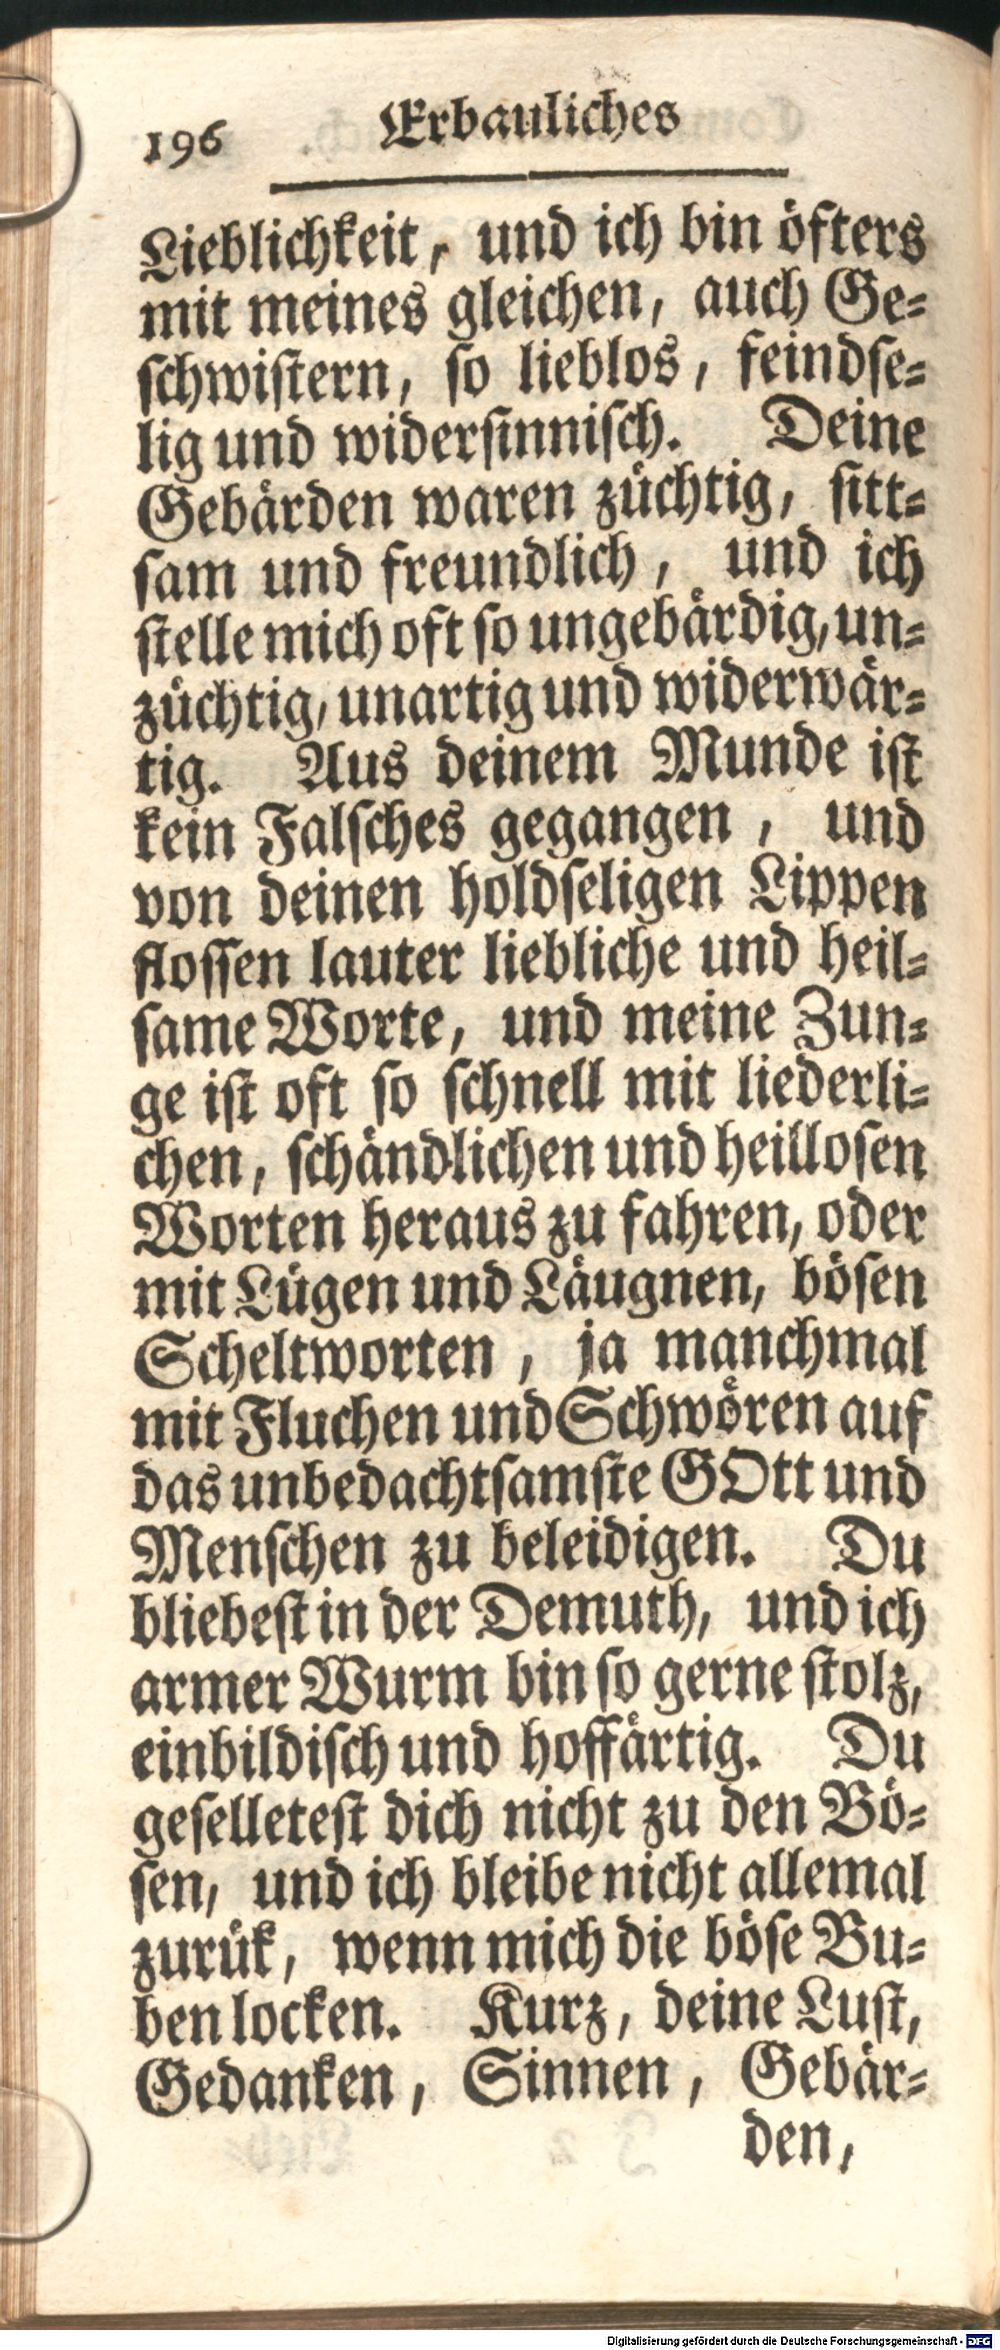 196 Erbauliches
Lieblichkeit, und ich bin öfters
mit meines gleichen, auch Ge-
schwistern, so lieblos, feindse-
lig und widersinnisch. Deine
Gebärden waren züchtig, sitt-
sam und freundlich, und ich
stelle mich oft so ungebärdig, un-
züchtig, unartig und widerwär-
tig. Aus deinem Munde ist
kein Falsches gegangen, und
von deinen holdseligen Lippen
flossen lauter liebliche und heil-
same Worte, und meine Zun-
ge ist oft so schnell mit liederli-
chen, schändlichen und heillosen
Worten heraus zu fahren, oder
mit Lügen und Läugnen, bösen
Scheltworten, ja manchmal
mit Fluchen und Schwören auf
das unbedachtsamste GOtt und
Menschen zu beleidigen. Du
bliebest in der Demuth, und ich
armer Wurm bin so gerne stolz,
einbildisch und hoffärtig. Du
geselletest dich nicht zu den Bö-
sen, und ich bleibe nicht allemal
zurük, wenn mich die böse Bu-
ben locken. Kurz, deine Lust,
Gedanken, Sinnen, Gebär-
den,
Digitalisierung gefördert durch die Deutsche Forschungsgemeinschaft - DFG